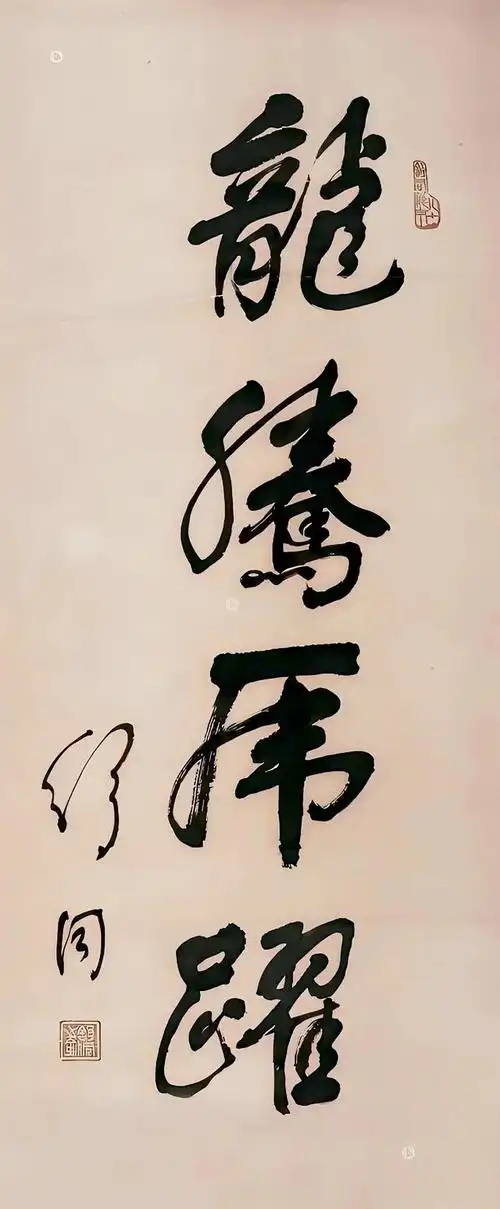 龍騰虎躍
舒同